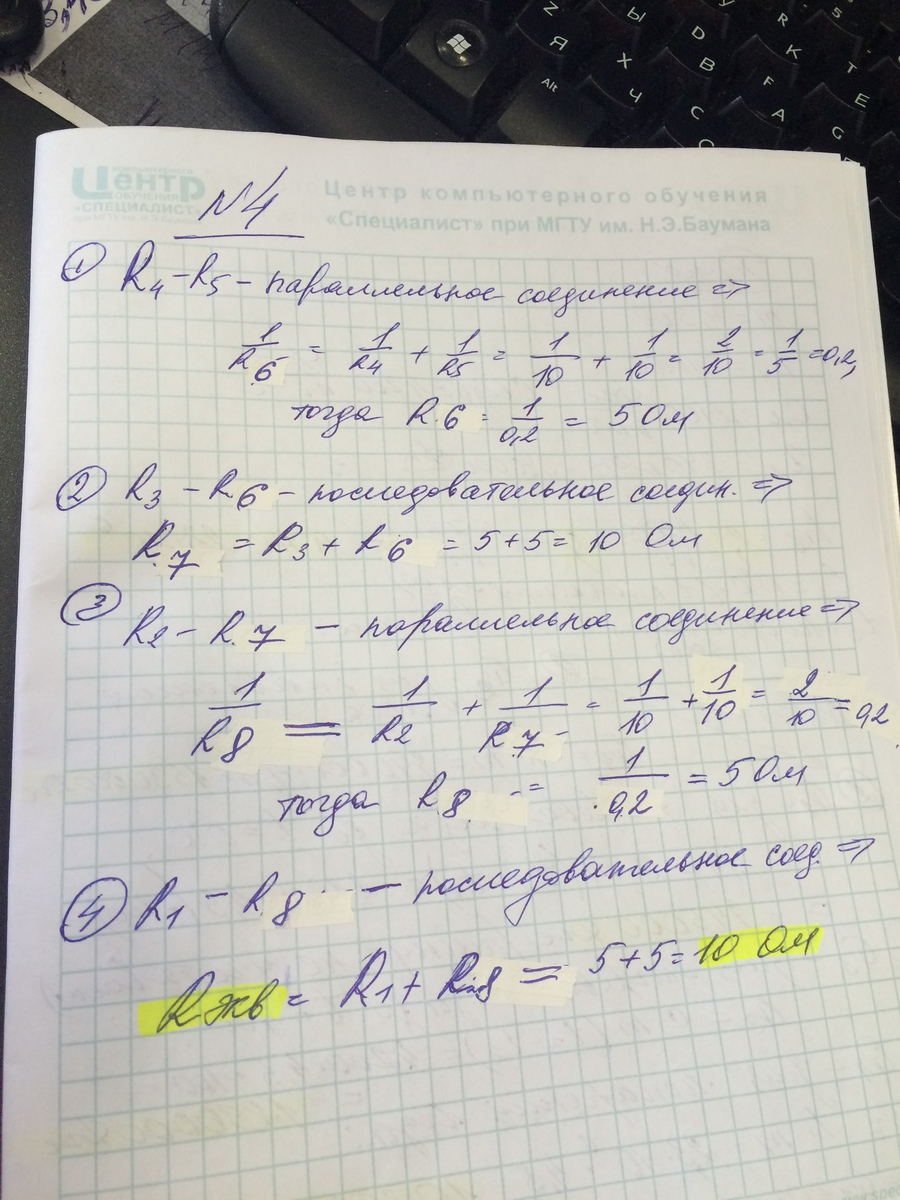 Z
Я
Ы
Х
Ч
D
В
С
R
К
F
А
5
Т
Е
G
Alt
КОМПЬЮТЕРНОГО
Центр
ОБУЧЕНИЯ
«СПЕЦИАЛИСТ»
при МГТУ им. Н.Э.Баумана
Центр компьютерного обучения
«Специалист» при МГТУ им. Н.Э.Баумана
N4
① R4 – R5 – параллельное соединение =>
1/R6 = 1/R4 + 1/R5 = 1/10 + 1/10 = 2/10 = 1/5 = 0,2,
тогда R6 = 1/0,2 = 5 Ом
② R3 – R6 – последовательное соедин. =>
R7 = R3 + R6 = 5+5 = 10 Ом
③ R2 – R7 – параллельное соединение =>
1/R8 = 1/R2 + 1/R7 = 1/10 + 1/10 = 2/10 = 0,2
тогда R8 = 1/0,2 = 5 Ом
④ R1 – R8 – последовательное соед. =>
Rэкв = R1 + R8 = 5+5 = 10 Ом